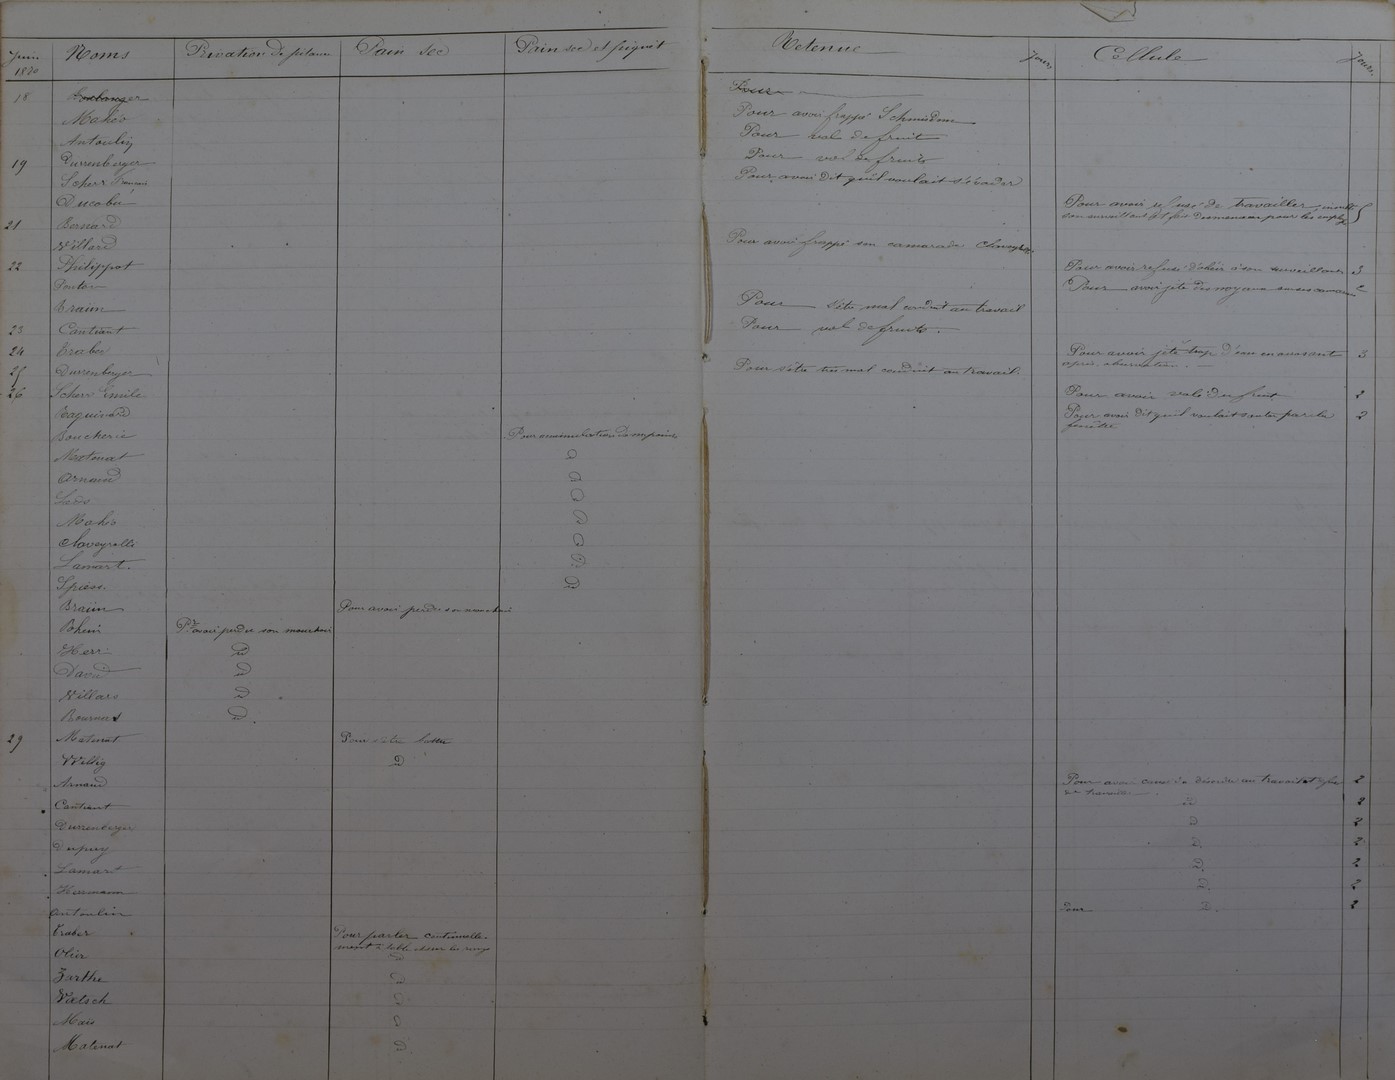 Juin 1870 Noms Privation de pitance Pain sec Pain sec et piquet Retenue Jours Cellule Jours
18 Boulanger Pour
Mahio Pour avoir frappé
Antoulin Pour vol de fruit
19 Durrenberger Pour vol de fruits
Scherr François Pour avoir dit qu'il voulait s'évader
Ducober Pour avoir refusé de travailler 5
21 Bernard son surveillant et fait des menaces pour les
Villard Pour avoir frappé son camarade
22 Philippot Pour avoir refusé d'obéir à son surveillant 3
Pour avoir jeté des noyaux 2
Braün Pour s'être mal conduit au travail
23 Cantiant Pour vol de fruits.
24 Traber Pour avoir jeté trop d'eau en arrosant 3
après observation.
25 Durrenberger Pour s'être très mal conduit au travail.
26 Scherr Emile Pour avoir volé du fruit 2
Pour avoir dit qu'il voulait sauter par la 2
fenêtre
Boucherie Pour
Matenat d
Arnaud d
d
Mahio d
Claveyrolle d
Lamart. d
Spiess. d
Braün Pour avoir perdu son mouchoir
Pr avoir perdu son mouchoir
Herr d
David d
Villard d
d.
29 Matenat Pour s'être battu
Willig d
Arnaud Pour avoir au travail et 2
de travailler.
Cantiant d 2
Durrenberger d 2
Dupuy d 2
Lamart d 2
Hermann d 2
Antoulin Pour d. 2
Traber Pour parler continuelle-
ment à table et sur les rangs
Olier d
Barthe d
Vatsch d
d
Matenat d